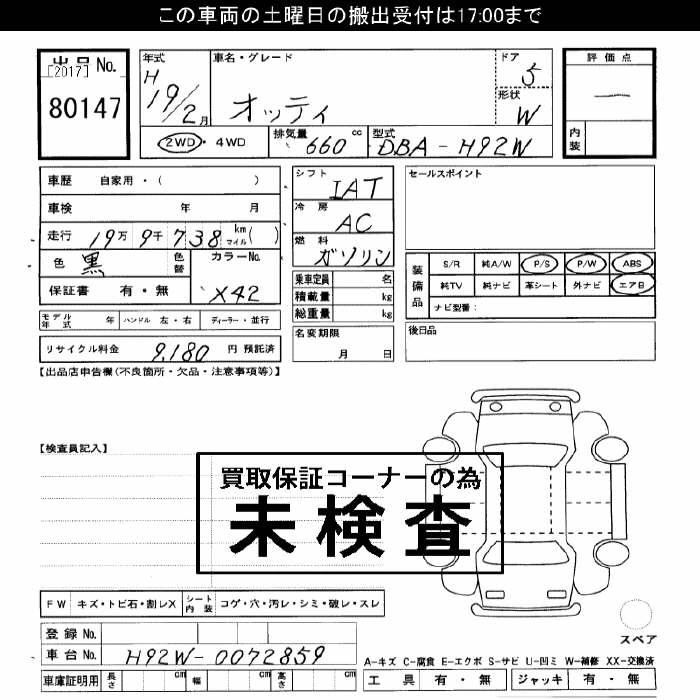 この車両の土曜日の搬出受付は17:00まで
出品 No.
[2017]
80147
年式 H 19/2月
車名・グレード オッティ
ドア 5
形状 W
2WD・4WD
排気量 660 cc
型式 DBA-H92W
評価点 —
内装
車歴 自家用・( )
車検 年 月
走行 19万 9千 738 km マイル ( )
色 黒 色替 カラーNo. X42
保証書 有・無
モデル年式 年 ハンドル 左・右 ディーラー・並行
リサイクル料金 9,180 円 預託済
シフト IAT
冷房 AC
燃料 ガソリン
乗車定員 名
積載量 kg
総重量 kg
名変期限 月 日
セールスポイント
装備品 S/R 純A/W P/S P/W ABS
純TV 純ナビ 革シート 外ナビ エアB
ナビ型番:
後日品
【出品店申告欄(不良箇所・欠品・注意事項等)】
【検査員記入】
買取保証コーナーの為
未検査
FW キズ・トビ石・割レX シート内装 コゲ・穴・汚レ・シミ・破レ・スレ
登録 No.
車台 No. H92W-0072859
車庫証明用 長さ cm 幅 cm 高さ cm
スペア
A-キズ C-腐食 E-エクボ S-サビ U-凹ミ W-補修 XX-交換済
工具 有・無 ジャッキ 有・無